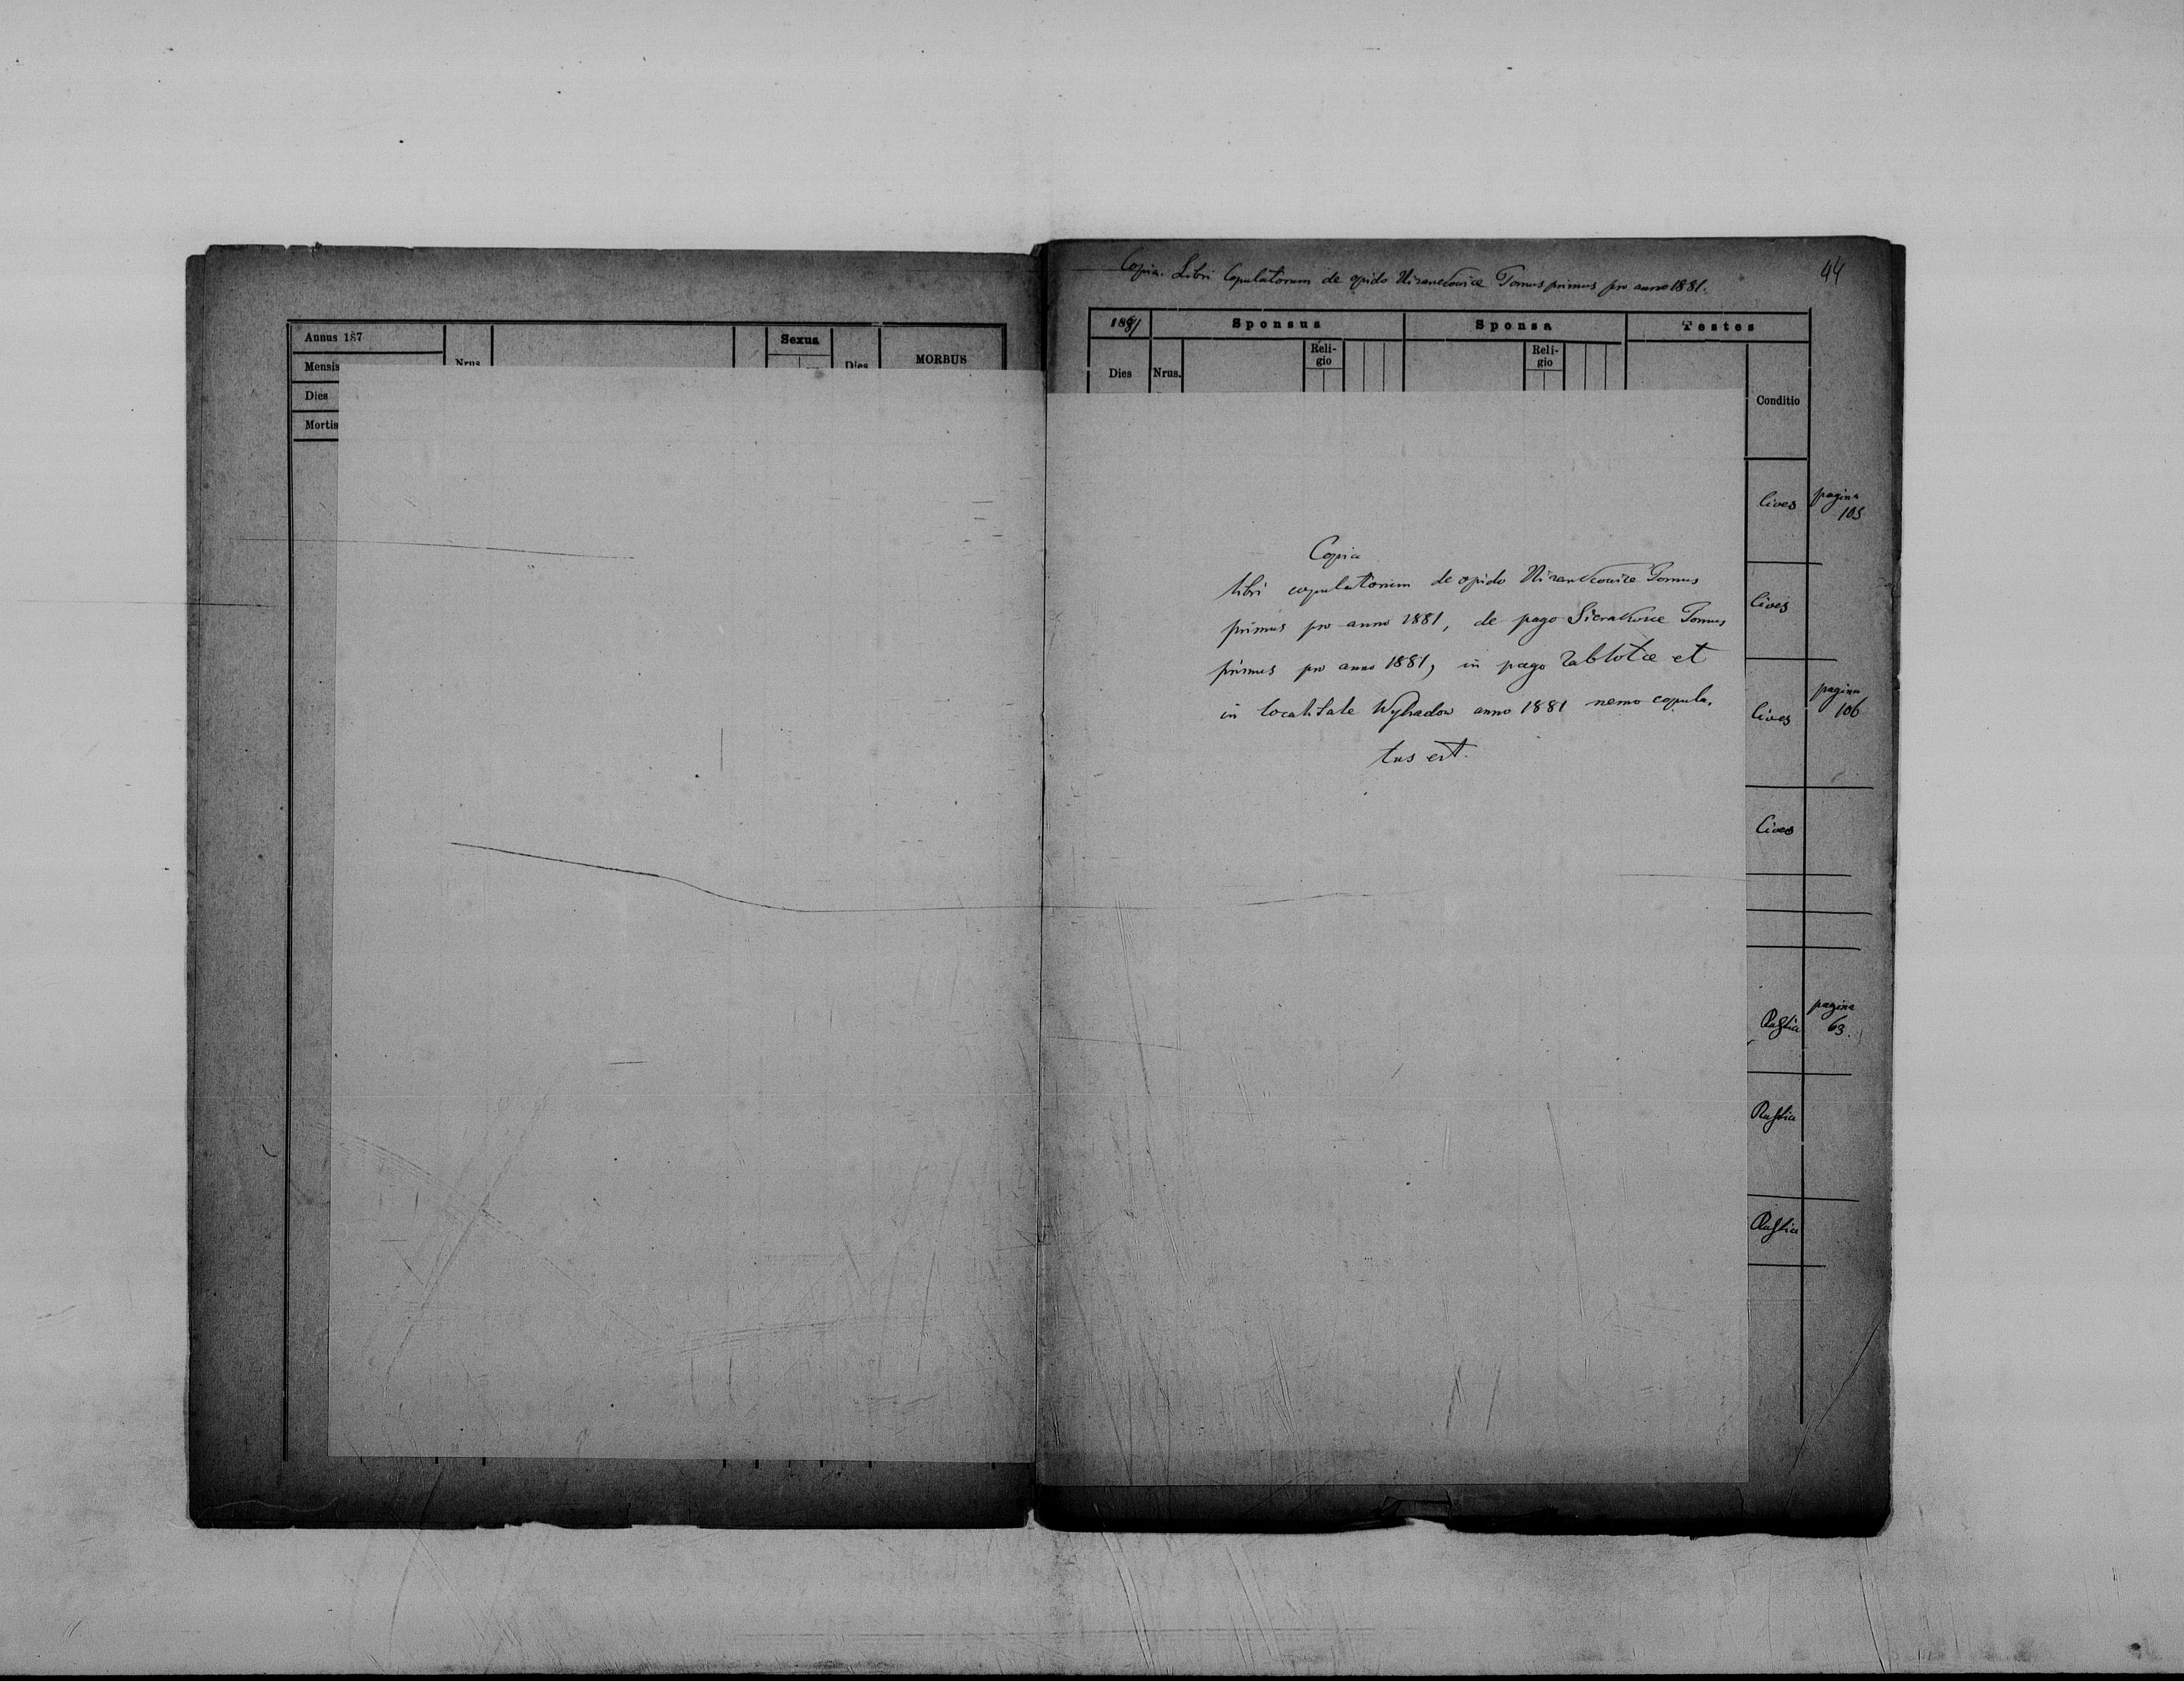 Annus 187
Mensis
Dies
Mortis
Nrus
Sexus
Dies
MORBUS
Copia. Libri Copulatorum de opido Nizankowice Tomus primus pro anno 1881.
44
1881
Sponsus
Sponsa
Testes
Dies
Nrus.
Reli-
gio
Reli-
gio
Conditio
Cives
pagina
105
Cives
Cives
pagina
106
Cives
Rustici
pagina
63.
Rustici
Rustici
Copia
libri copulatorum de opido Nizankowice Tomus
primus pro anno 1881, de pago Sierakosce Tomus
primus pro anno 1881, in pago Zablotce et
in localitate Wyhadow anno 1881 nemo copula,
tus est.